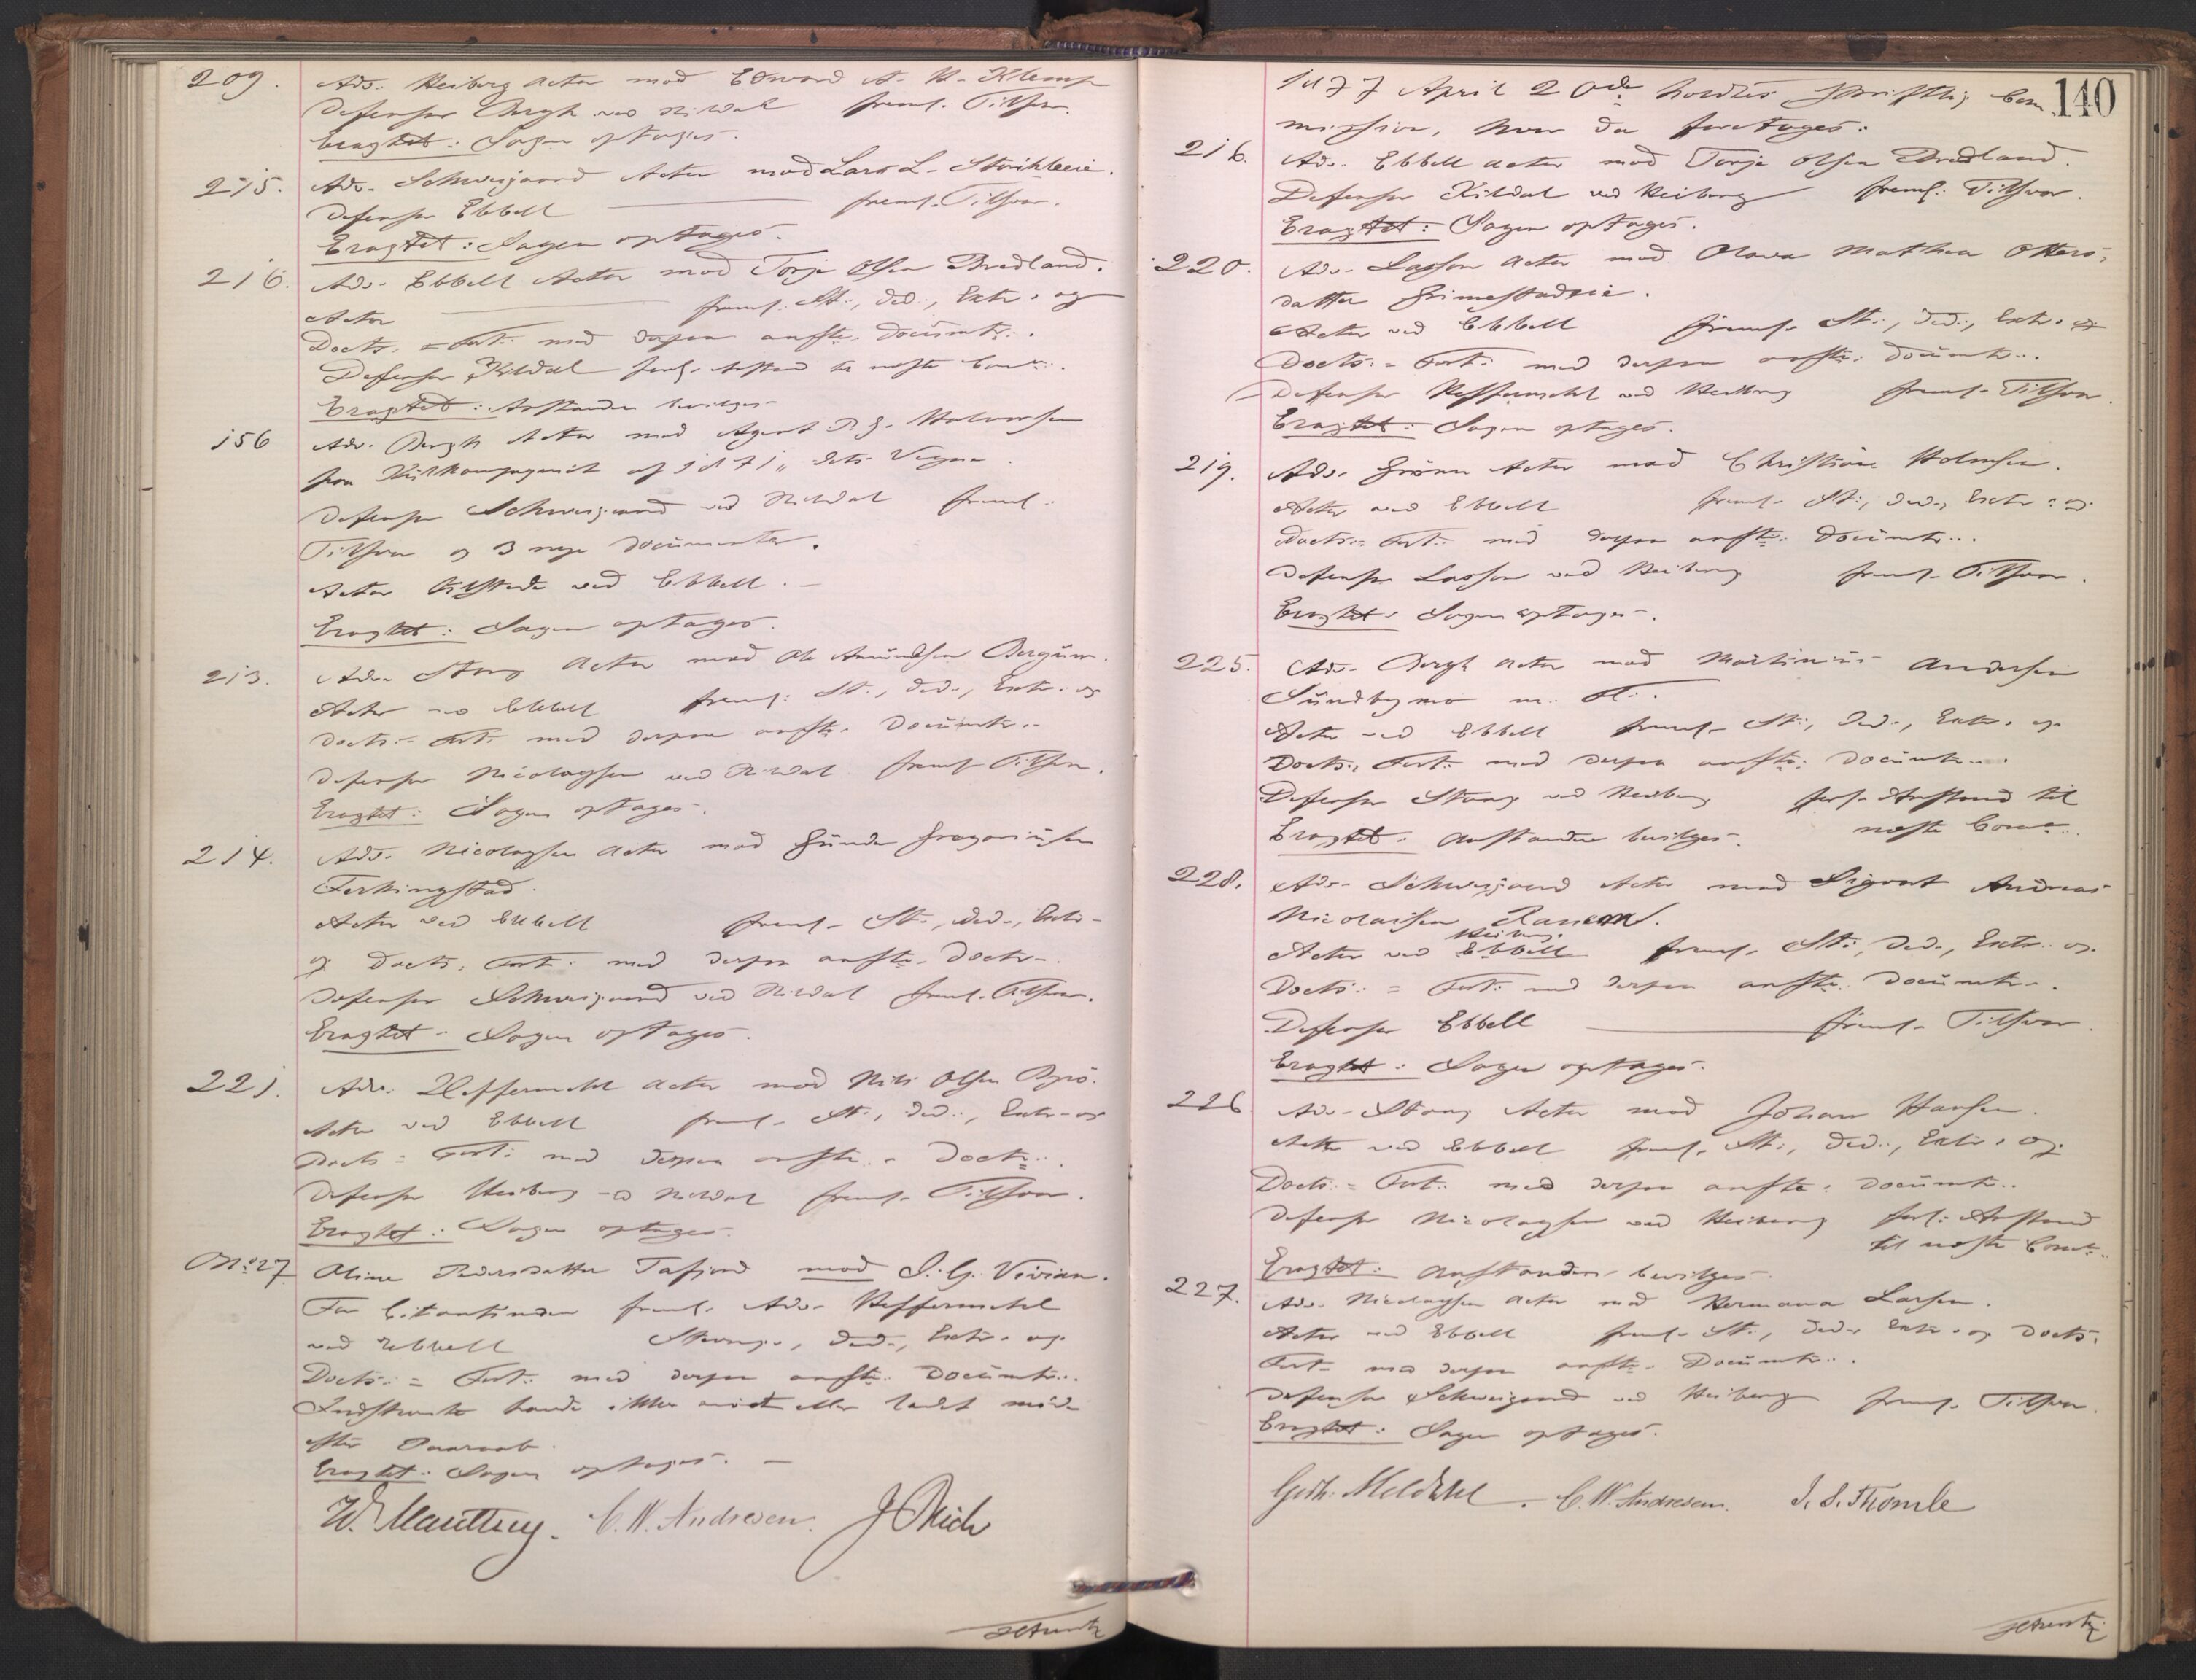 209. Adv. Heiberg Actor mod Edvard A. H. Klemp
Defensor Bergh ved Kildal freml. Tilsvar.
Eragtet: Sagen optages.
215. Adv. Schweigaard Actor mod Lars L. Storihleeie.
Defensor Ebbell freml. Tilsvar.
Eragtet: Sagen optages.
216. Adv. Ebbell Actor mod Torje Olsen Bredland.
Actor freml. St:, Ded:, Extr: og
Docts: = Fort: med derpaa anfte. Documtr:.
Defensor Kildal forl. Anstand til næste Comm:.
Eragtet: Anstanden bevilges.
156 Adv. Bergh Actor mod Agent P. G. Halvorsen
paa Kulkompagniet af 1871 „ dets Vegne.
Defensor Schweigaard ved Kildal freml.
Tilsvar og 3 nye Documenter.
Actor tilstede ved Ebbell. –
Eragtet: Sagen optages.
213. Adv. Stang Actor mod Ole Amundsen Bergum.
Actor ved Ebbell freml: St:, Ded:, Extr: og
Docts: = Fort: med derpaa anfte. Documtr:.
Defensor Nicolaysen ved Kildal freml Tilsvar.
Eragtet: Sagen optages.
214. Adv. Nicolaysen Actor mod Gunder Gregoriussen
Ferkingstad.
Actor ved Ebbell freml. St:, Ded:, Extr:
og Docts: Fort: med derpaa anfte. Doctr:.
Defensor Schweigaard ved Kildal freml. Tilsvar.
Eragtet: Sagen optages.
221. Adv. Heffermehl Actor mod Nils Olsen Byrö.
Actor ved Ebbell freml. St:, Ded:, Extr: og
Docts = Fort: med derpaa anfte. Doctr:.
Defensor Heiberg ved Kildal freml. Tilsvar.
Eragtet: Sagen optages.
No: 27 Oline Pedersdatter Tafjord mod J. G. Vivian.
For Citantinden freml. Adv. Heffermehl
ved Ebbell Stevng:, Ded:, Extr: og
Docts: = Fort: med derpaa anfte. Documtr:.
Indstevnte havde ikke mødt eller ladet møde
efter Paaraab.
Eragtet: Sagen optages. –
W. Manthey. C. W. Andresen. J Mich
1877 April 20de holdtes skriftlig Com
140
mission, hvor da foretoges:
216. Adv. Ebbell Actor mod Torje Olsen Bredland.
Defensor Kildal ved Heiberg freml: Tilsvar.
Eragtet: Sagen optages.
220. Adv. Lasson Actor mod Olava Mathea Otters-
datter Grimestadeie.
Actor ved Ebbell freml. St:, Ded:, Extr: og
Docts: = Fort: med derpaa anfte. Documtr:.
Defensor Heffermehl ved Heiberg freml. Tilsvar.
Eragtet: Sagen optages.
219. Adv. Grönn Actor mod Christiane Holmsen.
Actor ved Ebbell freml. St:, Ded:, Extr: og
Docts: = Fort: med derpaa anfte. Documtr:.
Defensor Lasson ved Heiberg freml. Tilsvar.
Eragtet: Sagen optages.
225. Adv. Bergh Actor mod Martinius Andersen
Sundbymo m. Fl:.
Actor ved Ebbell freml. St:, Ded:, Extr: og
Docts: Fort: med derpaa anfte. Documtr:.
Defensor Stang ved Heiberg forl. Anstand til
næste Comm:.
Eragtet: Anstanden bevilges.
228. Adv. Schweigaard Actor mod Sigvart Andreas
Nicolaisen Ranem.
Heiberg
Actor ved Ebbell freml. St:, Ded:, Extr: og
Docts: = Fort: med derpaa anfte. Documtr:.
Defensor Ebbell freml. Tilsvar.
Eragtet: Sagen optages.
226 Adv. Stang Actor mod Johan Hansen.
Actor ved Ebbell freml. St:, Ded:, Extr: og
Docts: = Fort: med derpaa anfte. Documtr:.
Defensor Nicolaysen ved Heiberg forl: Anstand
til næste Comm:.
Eragtet: Anstanden bevilges.
227. Adv. Nicolaysen Actor mod Hermana Larsen.
Actor ved Ebbell freml. St:, Ded: Extr: og Docts:
Fort: med derpaa anfte. Documtr:.
Defensor Schweigaard ved Heiberg freml. Tilsvar.
Eragtet: Sagen optages.
Goth. Meldahl. C. W. Andresen. J. S. Thomle